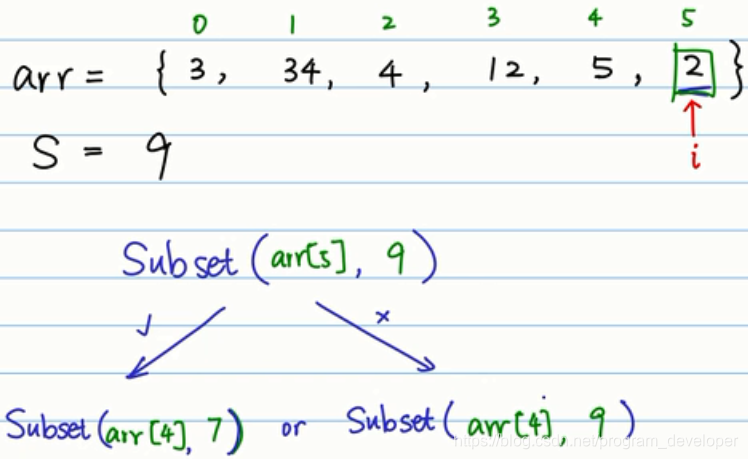 0 1 2 3 4 5
arr = { 3, 34, 4, 12, 5, 2 }
i
S = 9
Subset (arr[5], 9)
√ ×
Subset (arr[4], 7) or Subset( arr[4], 9 )
https://blog.csdn.net/program_developer